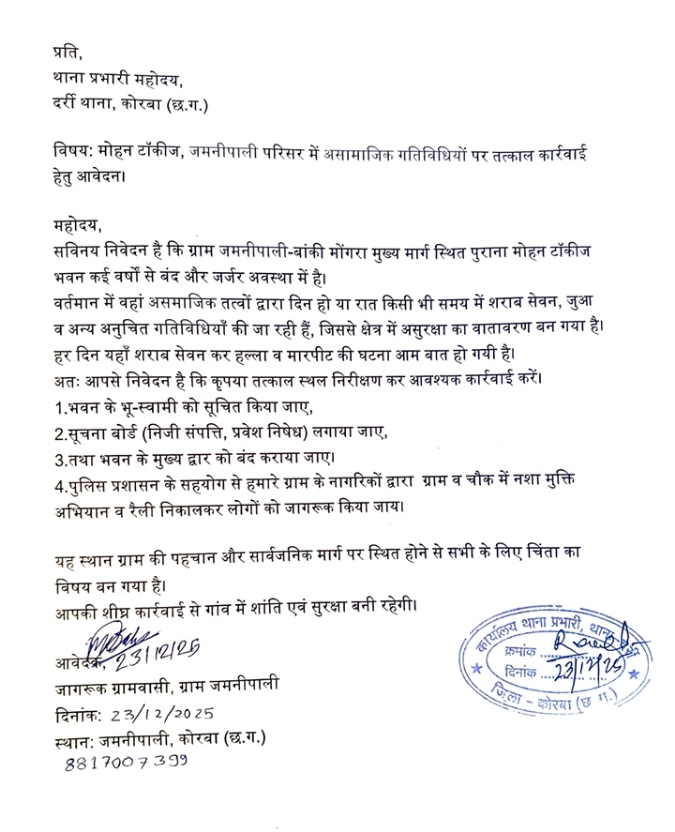 प्रति,
थाना प्रभारी महोदय,
दर्री थाना, कोरबा (छ.ग.)
विषय: मोहन टॉकीज, जमनीपाली परिसर में असामाजिक गतिविधियों पर तत्काल कार्रवाई
हेतु आवेदन।
महोदय,
सविनय निवेदन है कि ग्राम जमनीपाली-बांकी मोंगरा मुख्य मार्ग स्थित पुराना मोहन टॉकीज
भवन कई वर्षों से बंद और जर्जर अवस्था में है।
वर्तमान में वहां असमाजिक तत्वों द्वारा दिन हो या रात किसी भी समय में शराब सेवन, जुआ
व अन्य अनुचित गतिविधियाँ की जा रही हैं, जिससे क्षेत्र में असुरक्षा का वातावरण बन गया है।
हर दिन यहाँ शराब सेवन कर हल्ला व मारपीट की घटना आम बात हो गयी है।
अतः आपसे निवेदन है कि कृपया तत्काल स्थल निरीक्षण कर आवश्यक कार्रवाई करें।
1.भवन के भू-स्वामी को सूचित किया जाए,
2.सूचना बोर्ड (निजी संपत्ति, प्रवेश निषेध) लगाया जाए,
3.तथा भवन के मुख्य द्वार को बंद कराया जाए।
4.पुलिस प्रशासन के सहयोग से हमारे ग्राम के नागरिकों द्वारा ग्राम व चौक में नशा मुक्ति
अभियान व रैली निकालकर लोगों को जागरूक किया जाय।
यह स्थान ग्राम की पहचान और सार्वजनिक मार्ग पर स्थित होने से सभी के लिए चिंता का
विषय बन गया है।
आपकी शीघ्र कार्रवाई से गांव में शांति एवं सुरक्षा बनी रहेगी।
आवेदक, 23/12/25
जागरूक ग्रामवासी, ग्राम जमनीपाली
दिनांक: 23/12/2025
स्थान: जमनीपाली, कोरबा (छ.ग.)
8817007399
कार्यालय थाना प्रभारी, थाना
क्रमांक
दिनांक 23/12/25
जिला - कोरबा (छ.ग.)